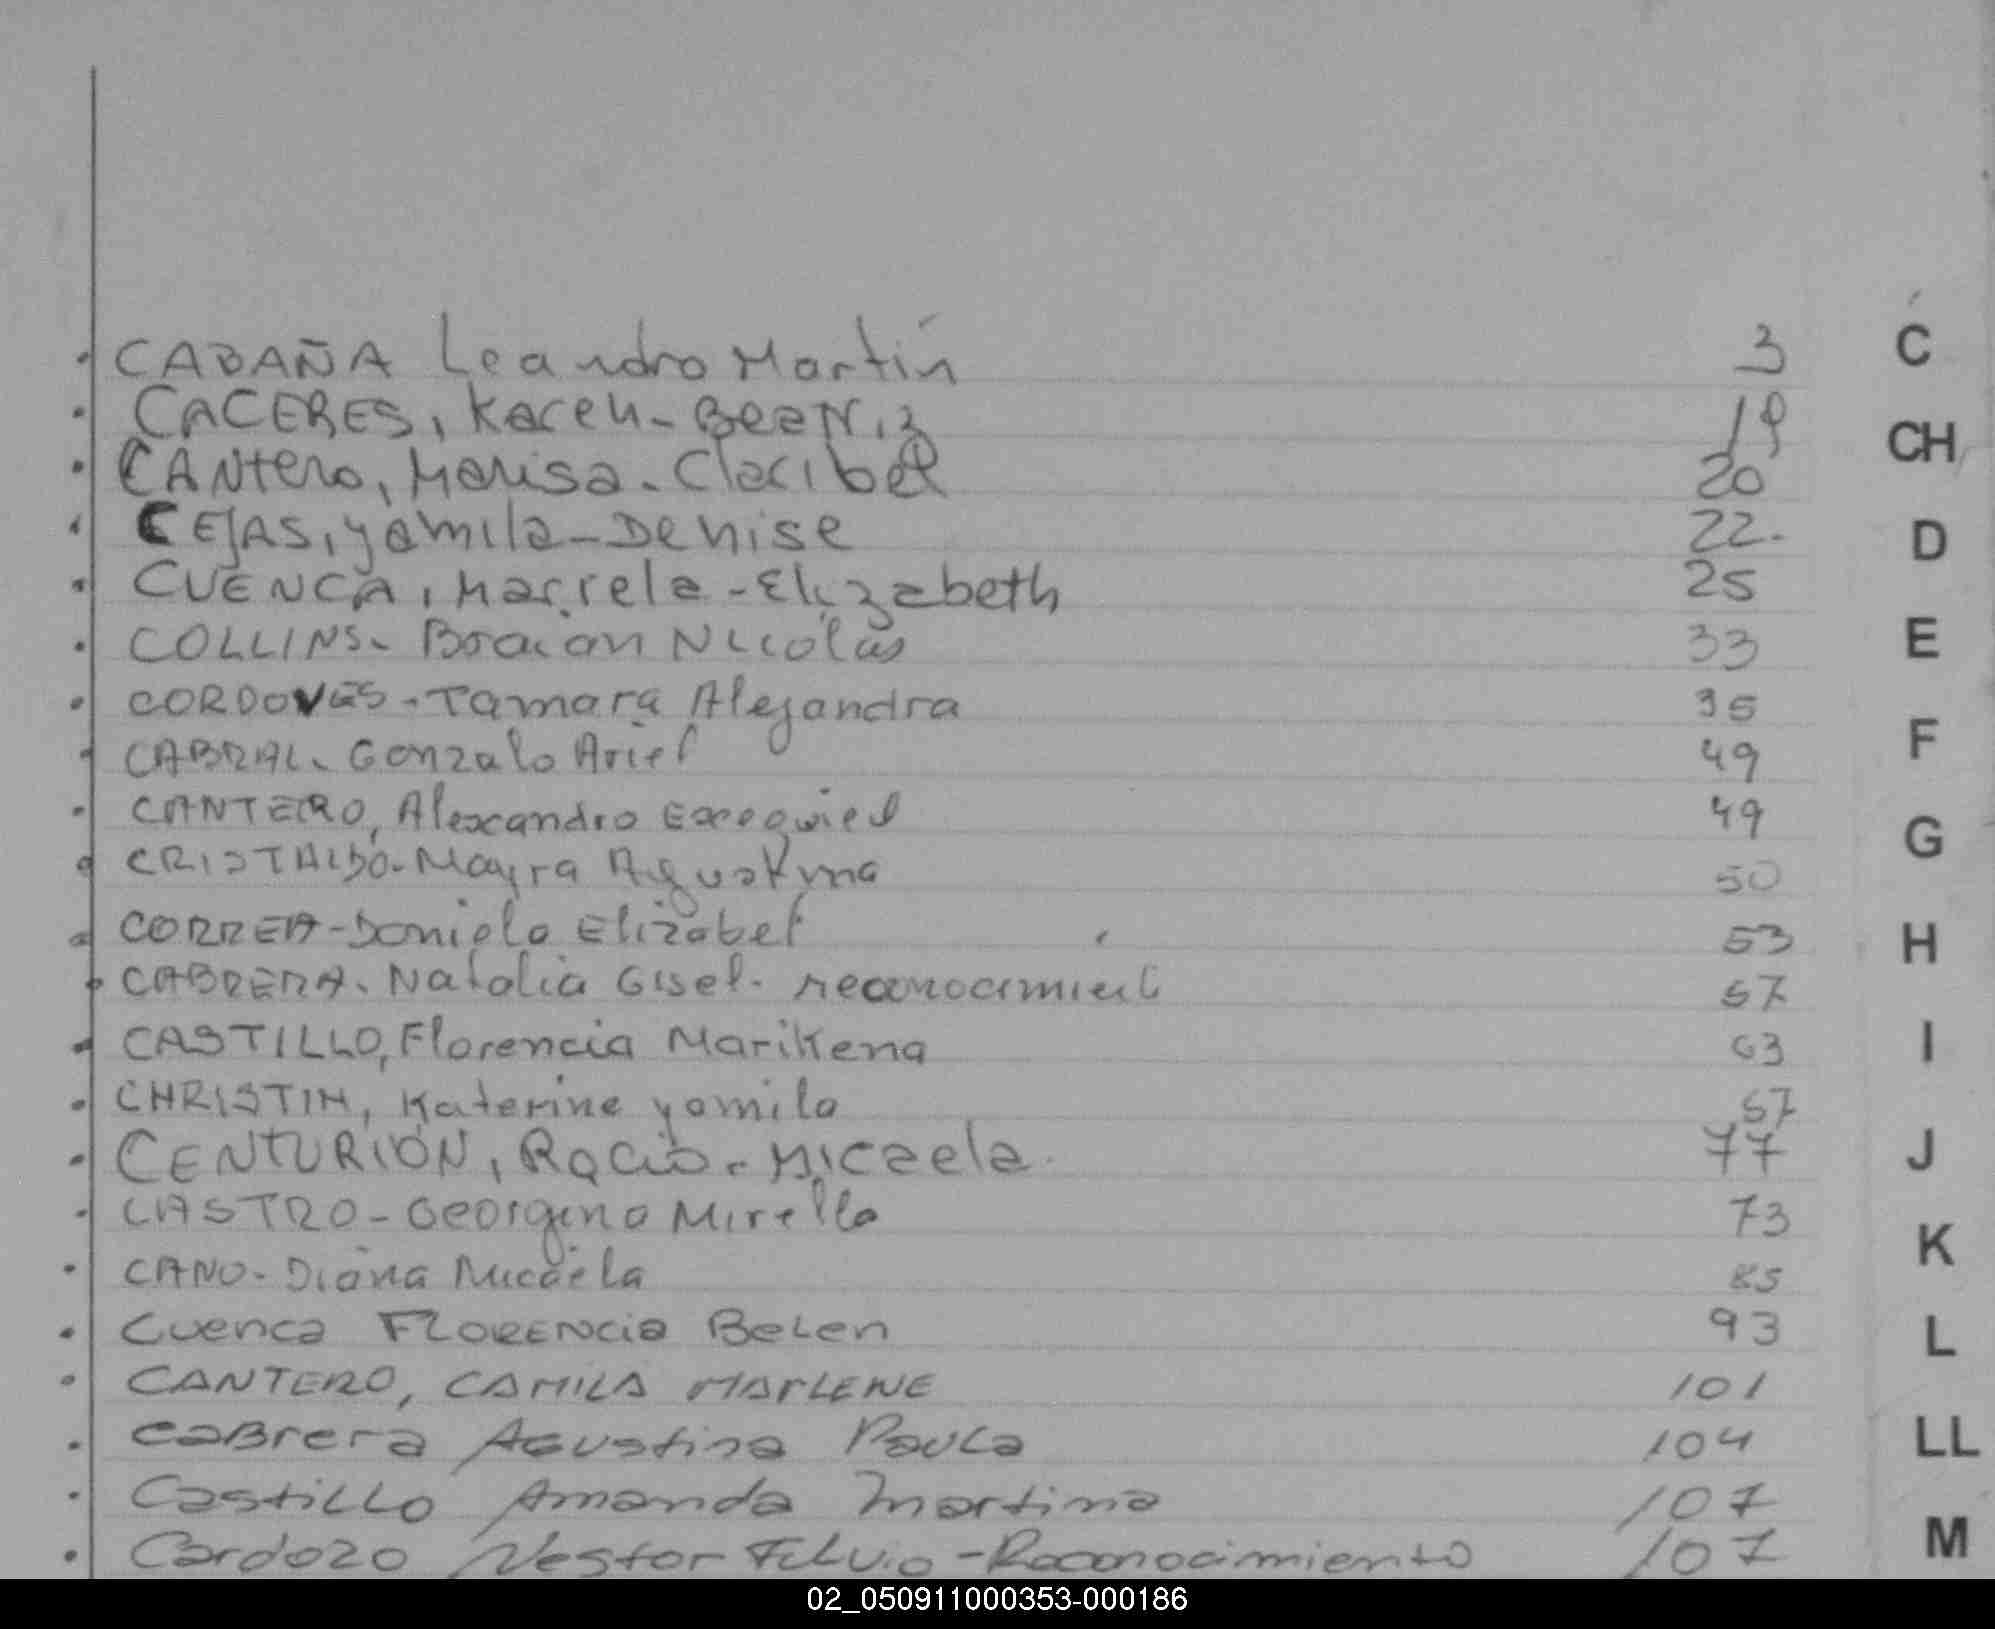 CABAÑA Leandro Martín 3 C
CACERES, Karen - Beatriz 19 CH
CANtero, Marisa - Claribel 20
CEJAS, Yamila - Denise 22. D
CUENCA, Mariela - Elizabeth 25
COLLINS - Braian Nicolás 33 E
CORDOVES - Tamara Alejandra 35
CABRAL - Gonzalo Ariel 49 F
CANTERO, Alexandro Exequiel 49 G
CRISTALDO - Mayra Agustina 50
CORREA - Daniela Elizabet 53 H
CABRERA - Natalia Gisel - reconocimient 57
CASTILLO, Florencia Marikena 63 I
CHRISTIN, Katerine yamila 67
CENTURIÓN, Rocío - Micaela 77 J
CASTRO - Georgina Mirella 73
CANO - Diana Micaela 85 K
Cuenca FLORENCia BeLen 93 L
CANTERO, CAMILA MARLENE 101
CaBrera Agustina PauLa 104 LL
CastiLLo Amanda Martina 107
Cardozo Nestor FULvio - Reconocimiento 107 M
02_050911000353-000186